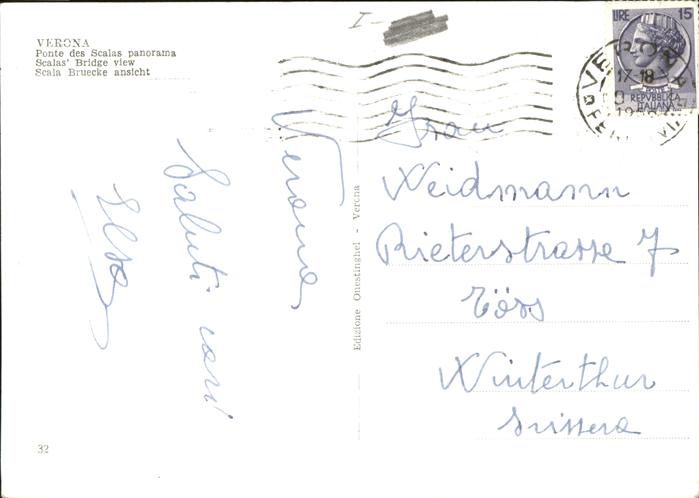 VERONA
Ponte des Scalas panorama
Scalas' Bridge view
Scala Bruecke ansicht
I-
LIRE 15
REPVBBLICA
ITALIANA
VERONA
17-18
Verona,
Saluti cari
Elsa
Edizione Onestinghel - Verona
Frau
Weidmann
Rieterstrasse 7
Töss
Winterthur
Svissera
32